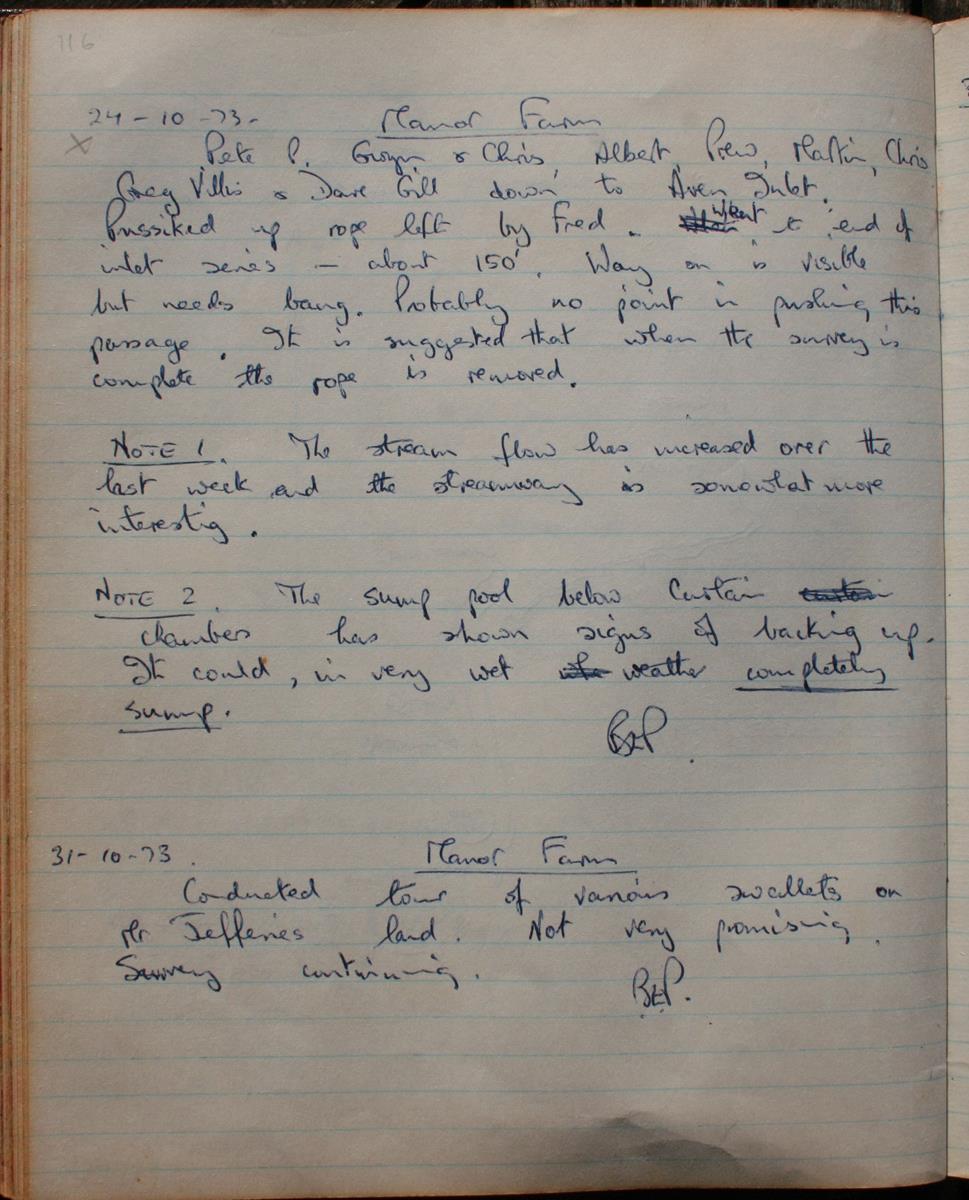 116
24-10-73. Manor Farm
X
Pete P. Gwyn & Chris, Albert, Prew, Martin, Chris
Greg Villis & Dave Gill down to Aven Inlet.
Prussiked up rope left by Fred. went to end of
inlet series - about 150'. Way on is visible
but needs bang. Probably no point in pushing this
passage. It is suggested that when the survey is
complete the rope is removed.
NOTE 1. The stream flow has increased over the
last week and the streamway is somewhat more
interestig.
NOTE 2. The sump pool below Curtain
chamber has shown signs of backing up.
It could, in very wet weather completely
sump.
BEP.
31-10-73. Manor Farm
Conducted tour of various swallets on
Mr Jefferies land. Not very promising.
Survey continuing.
BEP.